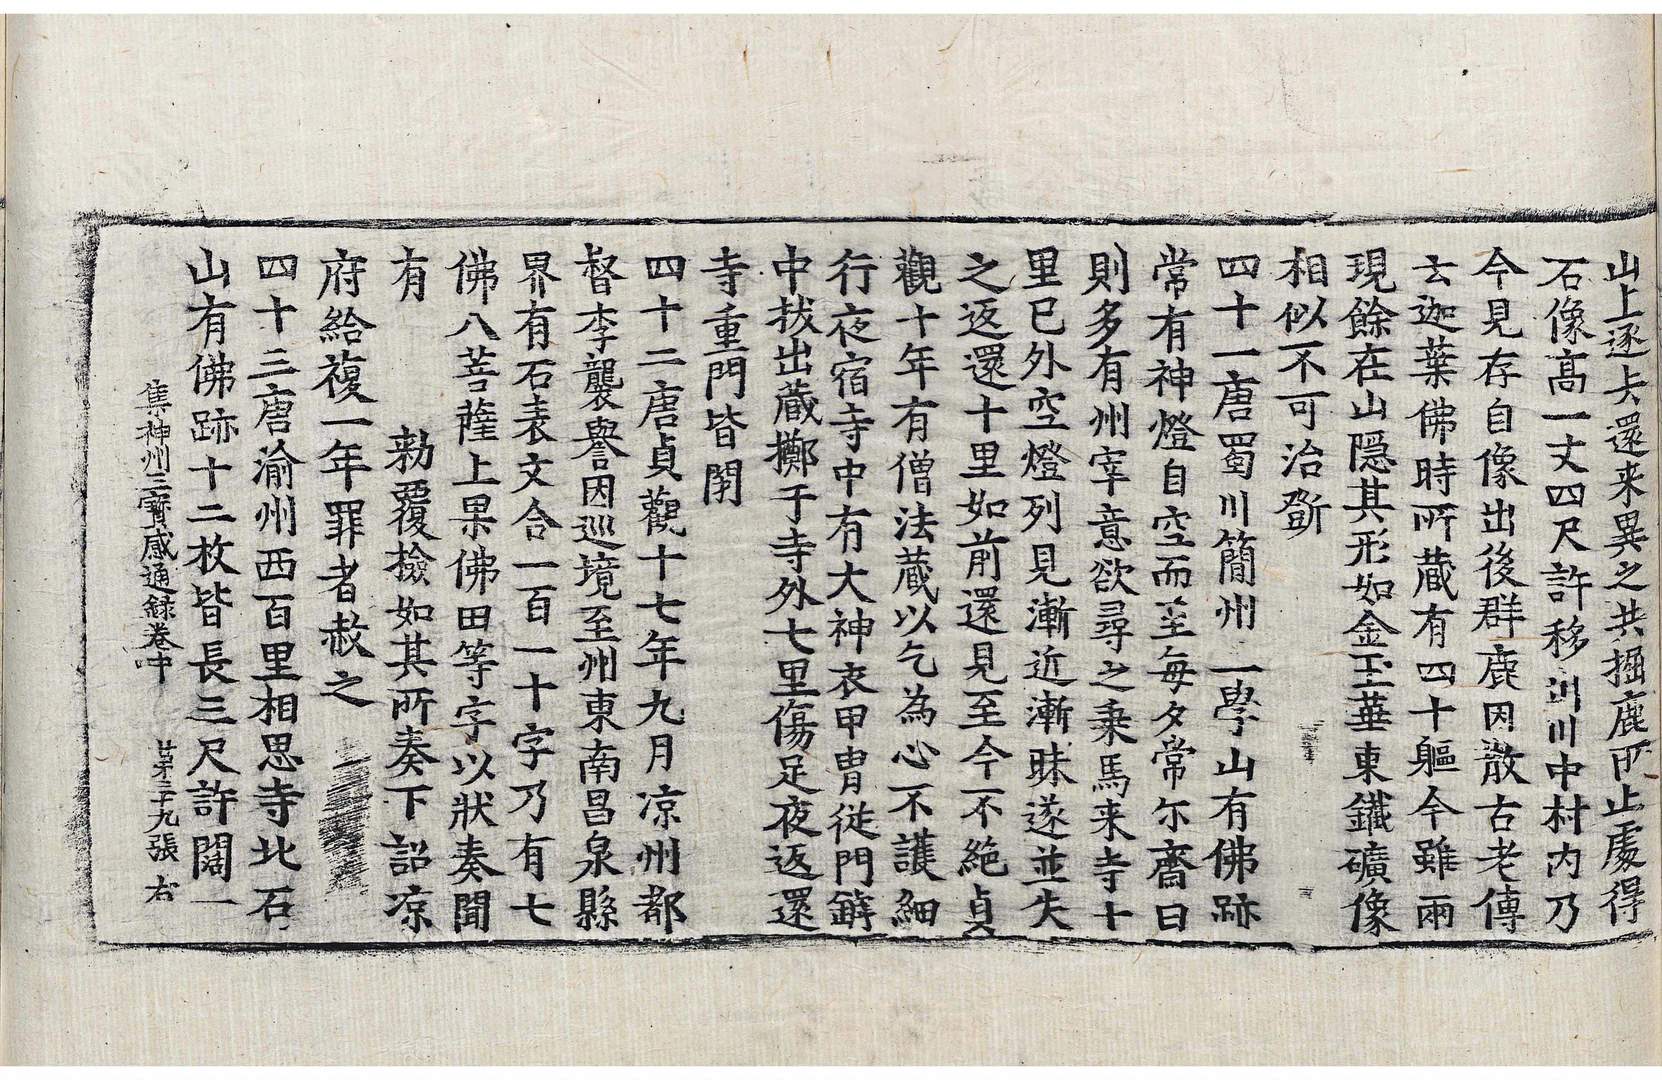 山上逐去還来異之共掘鹿所止處得
石像高一丈四尺許移川中村内乃
今見存自像出後群鹿因散古老傳
云迦葉佛時所藏有四十軀今雖兩
現餘在山隱其形如金玉華東鐵礦像
相似不可治斵
四十一唐蜀川簡州三學山有佛跡
常有神燈自空而至每夕常尓齋日
則多有州宰意欲尋之乗馬来寺十
里已外空燈列見漸近漸昧遂並失
之返還十里如前還見至今不絶貞
觀十年有僧法藏以乞為心不護細
行夜宿寺中有大神衣甲冑從門
中拔出藏擲于寺外七里傷足夜返還
寺重門皆閇
四十二唐貞觀十七年九月涼州都
督李襲譽因巡境至州東南昌泉縣
界有石表文合一百一十字乃有七
佛八菩薩上果佛田等字以狀奏聞
有　　勑覆檢如其所奏下詔涼
府給複一年罪者赦之
四十三唐渝州西百里相思寺北石
山有佛跡十二枚皆長三尺許闊一
集神州三寶感通錄卷中　苐二十九張　右